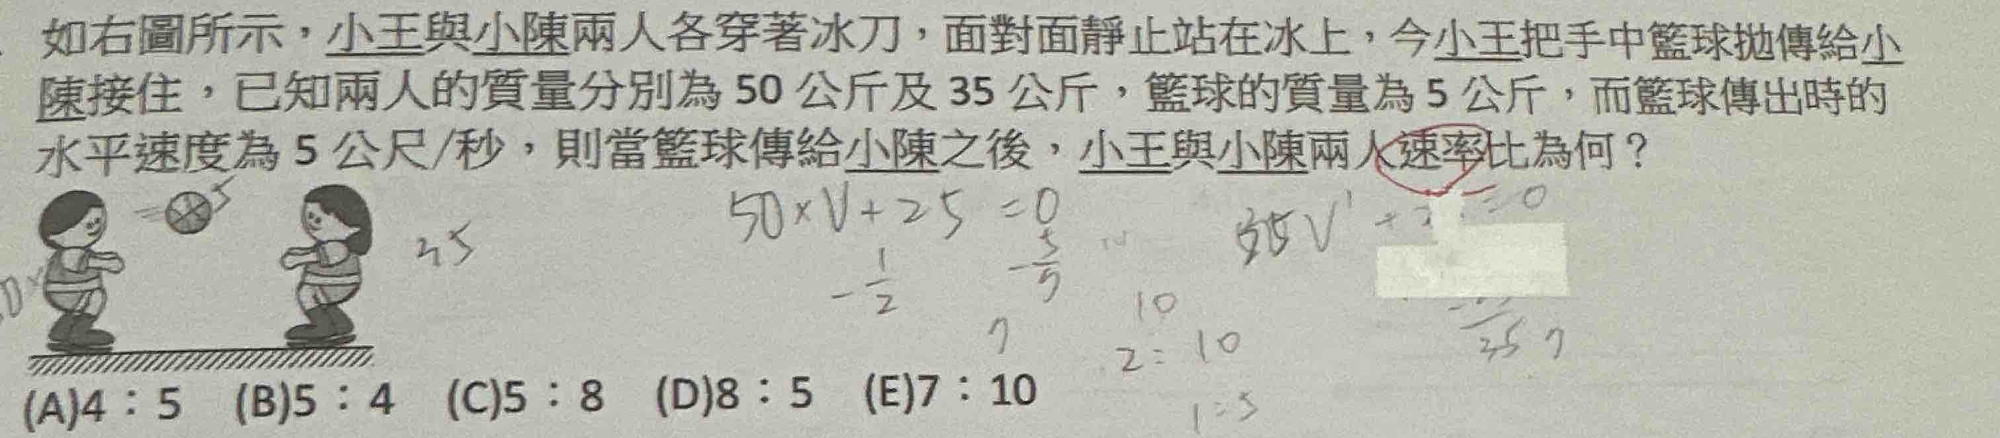 如右圖所示，小王與小陳兩人各穿著冰刀，面對面靜止站在冰上，今小王把手中籃球拋傳給小
陳接住，已知兩人的質量分別為 50 公斤及 35 公斤，籃球的質量為 5 公斤，而籃球傳出時的
水平速度為 5 公尺/秒，則當籃球傳給小陳之後，小王與小陳兩人速率比為何？
5
35
50×V+25=0
-1/2
-5/5
35V'+
=0
7
10
2:10
1:5
35 7
(A)4：5 (B)5：4 (C)5：8 (D)8：5 (E)7：10